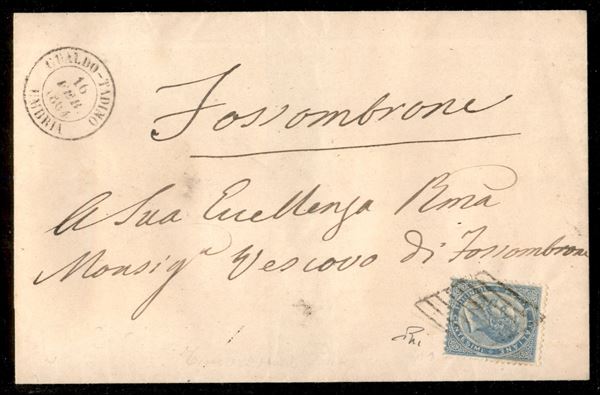 GUALDO-TADINO
16
FEB
1864
UMBRIA
Fossombrone
A Sua Eccellenza Rmã
Monsigʳ Vescovo di Fossombrone